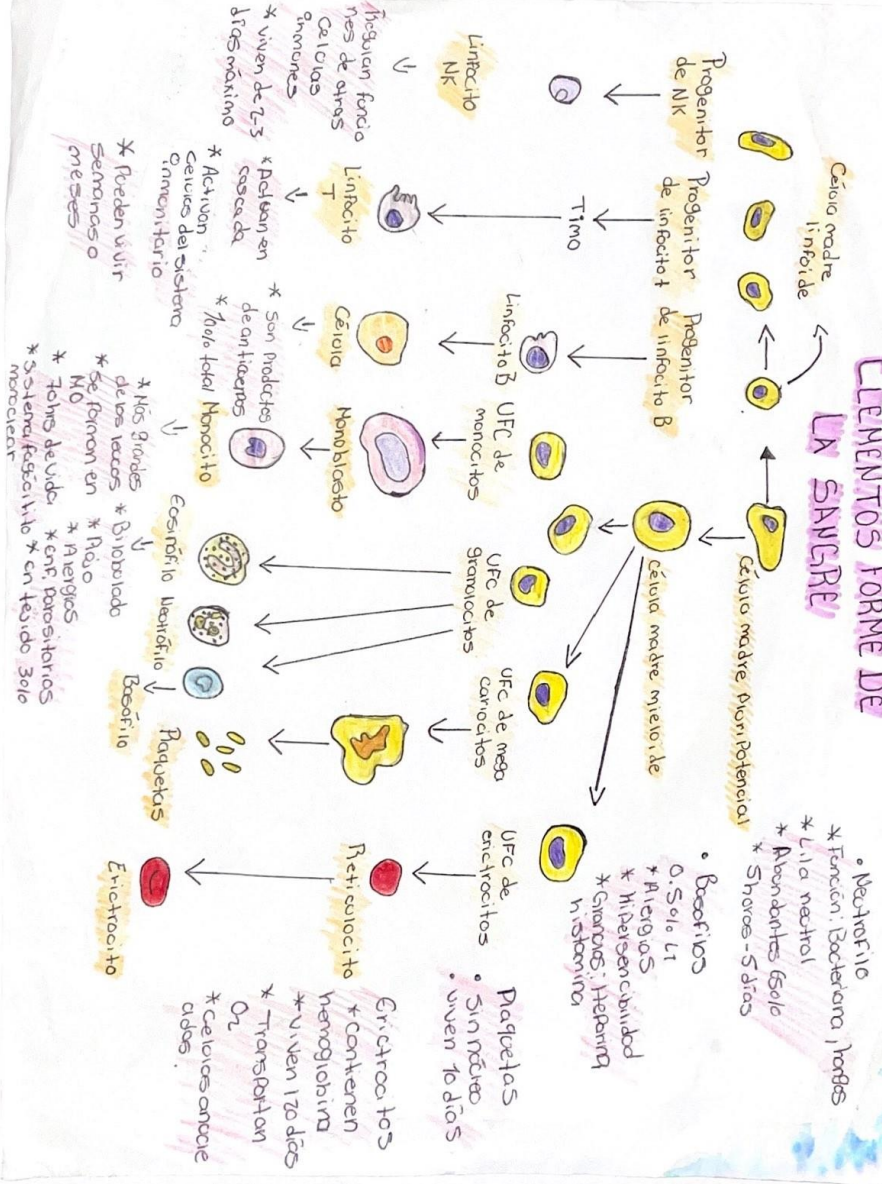 ELEMENTOS FORME DE
LA SANGRE
Célula madre PluriPotencial
Célula madre
linfoide
Célula madre mieloide
Progenitor
de NK
Progenitor
de linfocito t
Progenitor
de linfocito B
Timo
Linfocito B
UFC de
monocitos
UFC de
granulocitos
UFC de mega
cariocitos
UFC de
erictrocitos
Linfocito
NK
Linfocito
T
Célula
Monoblasto
Reticulocito
Monocito
Eosinófilo
Neutrófilo
Basófilo
Plaquetas
Erictrocito
Regulan funcio
nes de otras
Celulas
inmunes
* Viven de 2-3
días máximo
* Actuan en
cascada
* Activan
Celulas del sistema
inmunitario
* Pueden vivir
semanas o
meses
* Son productos
de anticuerpos
* 10% total
* Más grandes
de los leucos
* Se forman en
MO
* 70hrs de vida
* Sistema fagocitito
monoclear
* Bilobulado
* Rojo
* Alergias
* enf. Parasitarios
* en tejido 30%
• Neutrofilo
* Función: Bacteriana, hongos
* Lila neutral
* Abundantes 65%
* 5 horas - 5 días
• Basofilos
0.5% L1
* Alergias
* Hipersencibilidad
* Granulos: Heparina
histamina
Plaquetas
• Sin núcleo
• Viven 10 días
Erictrocitos
* Contienen
hemoglobina
* Viven 120 días
* Transportan
O2
* Celulas anucle
adas.